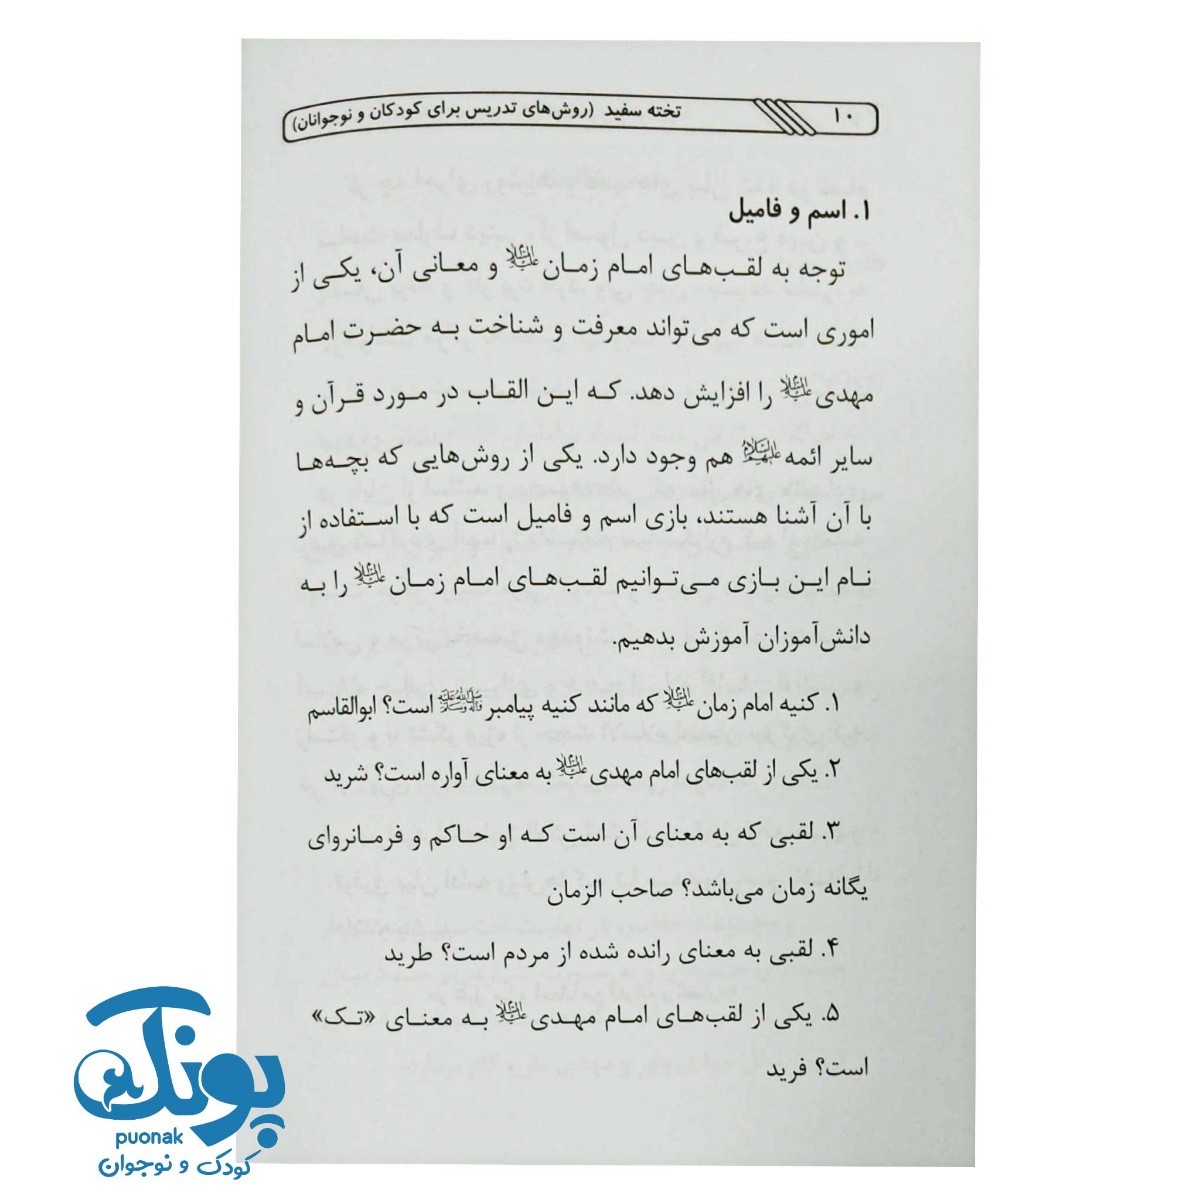 ۱۰ تخته سفید (روش‌های تدریس برای کودکان و نوجوانان)
۱. اسم و فامیل
توجه به لقب‌های امام زمان علیه‌السلام و معانی آن، یکی از
اموری است که می‌تواند معرفت و شناخت به حضرت امام
مهدی علیه‌السلام را افزایش دهد. که این القاب در مورد قرآن و
سایر ائمه علیهم‌السلام هم وجود دارد. یکی از روش‌هایی که بچه‌ها
با آن آشنا هستند، بازی اسم و فامیل است که با استفاده از
نام این بازی می‌توانیم لقب‌های امام زمان علیه‌السلام را به
دانش‌آموزان آموزش بدهیم.
۱. کنیه امام زمان علیه‌السلام که مانند کنیه پیامبر صلی‌الله‌علیه‌وآله‌وسلم است؟ ابوالقاسم
۲. یکی از لقب‌های امام مهدی علیه‌السلام به معنای آواره است؟ شرید
۳. لقبی که به معنای آن است که او حاکم و فرمانروای
یگانه زمان می‌باشد؟ صاحب الزمان
۴. لقبی به معنای رانده شده از مردم است؟ طرید
۵. یکی از لقب‌های امام مهدی علیه‌السلام به معنای «تک»
است؟ فرید
پونک
puonak
کودک و نوجوان